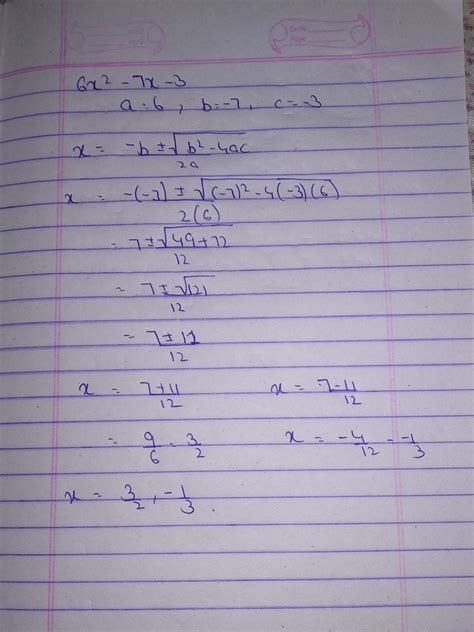 6x² - 7x - 3
a = 6 , b = -7 , c = -3
x = -b ± √b² - 4ac / 2a
x = -(-7) ± √(-7)² - 4(-3)(6) / 2(6)
= 7 ± √49 + 72 / 12
= 7 ± √121 / 12
= 7 ± 11 / 12
x = 7 + 11 / 12 x = 7 - 11 / 12
= 9/6 = 3/2 x = -4/12 = -1/3
x = 3/2 , -1/3